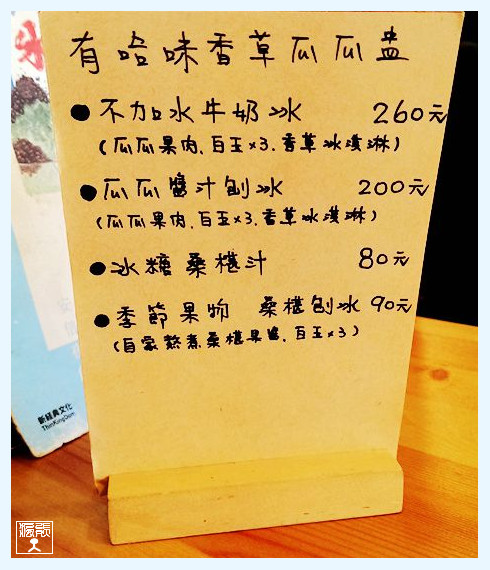 有哈味香草瓜瓜盅
●不加水牛奶冰 260元
(瓜瓜果肉.白玉×3.香草冰淇淋)
●瓜瓜醬汁刨冰 200元
(瓜瓜果肉.白玉×3.香草冰淇淋)
●冰糖桑椹汁 80元
●季節果物 桑椹刨冰 90元
(自家熬煮桑椹果醬.白玉×3)
新經典文化
ThinKingDom